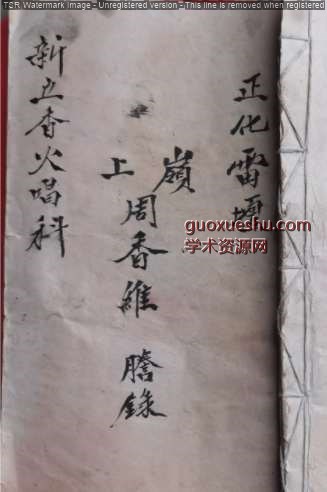 TSR Watermark Image - Unregistered version - This line is removed when registered
正化雷壇
嶺
上
周香維 謄錄
新立香火唱科
guoxueshu.com
学术资源网